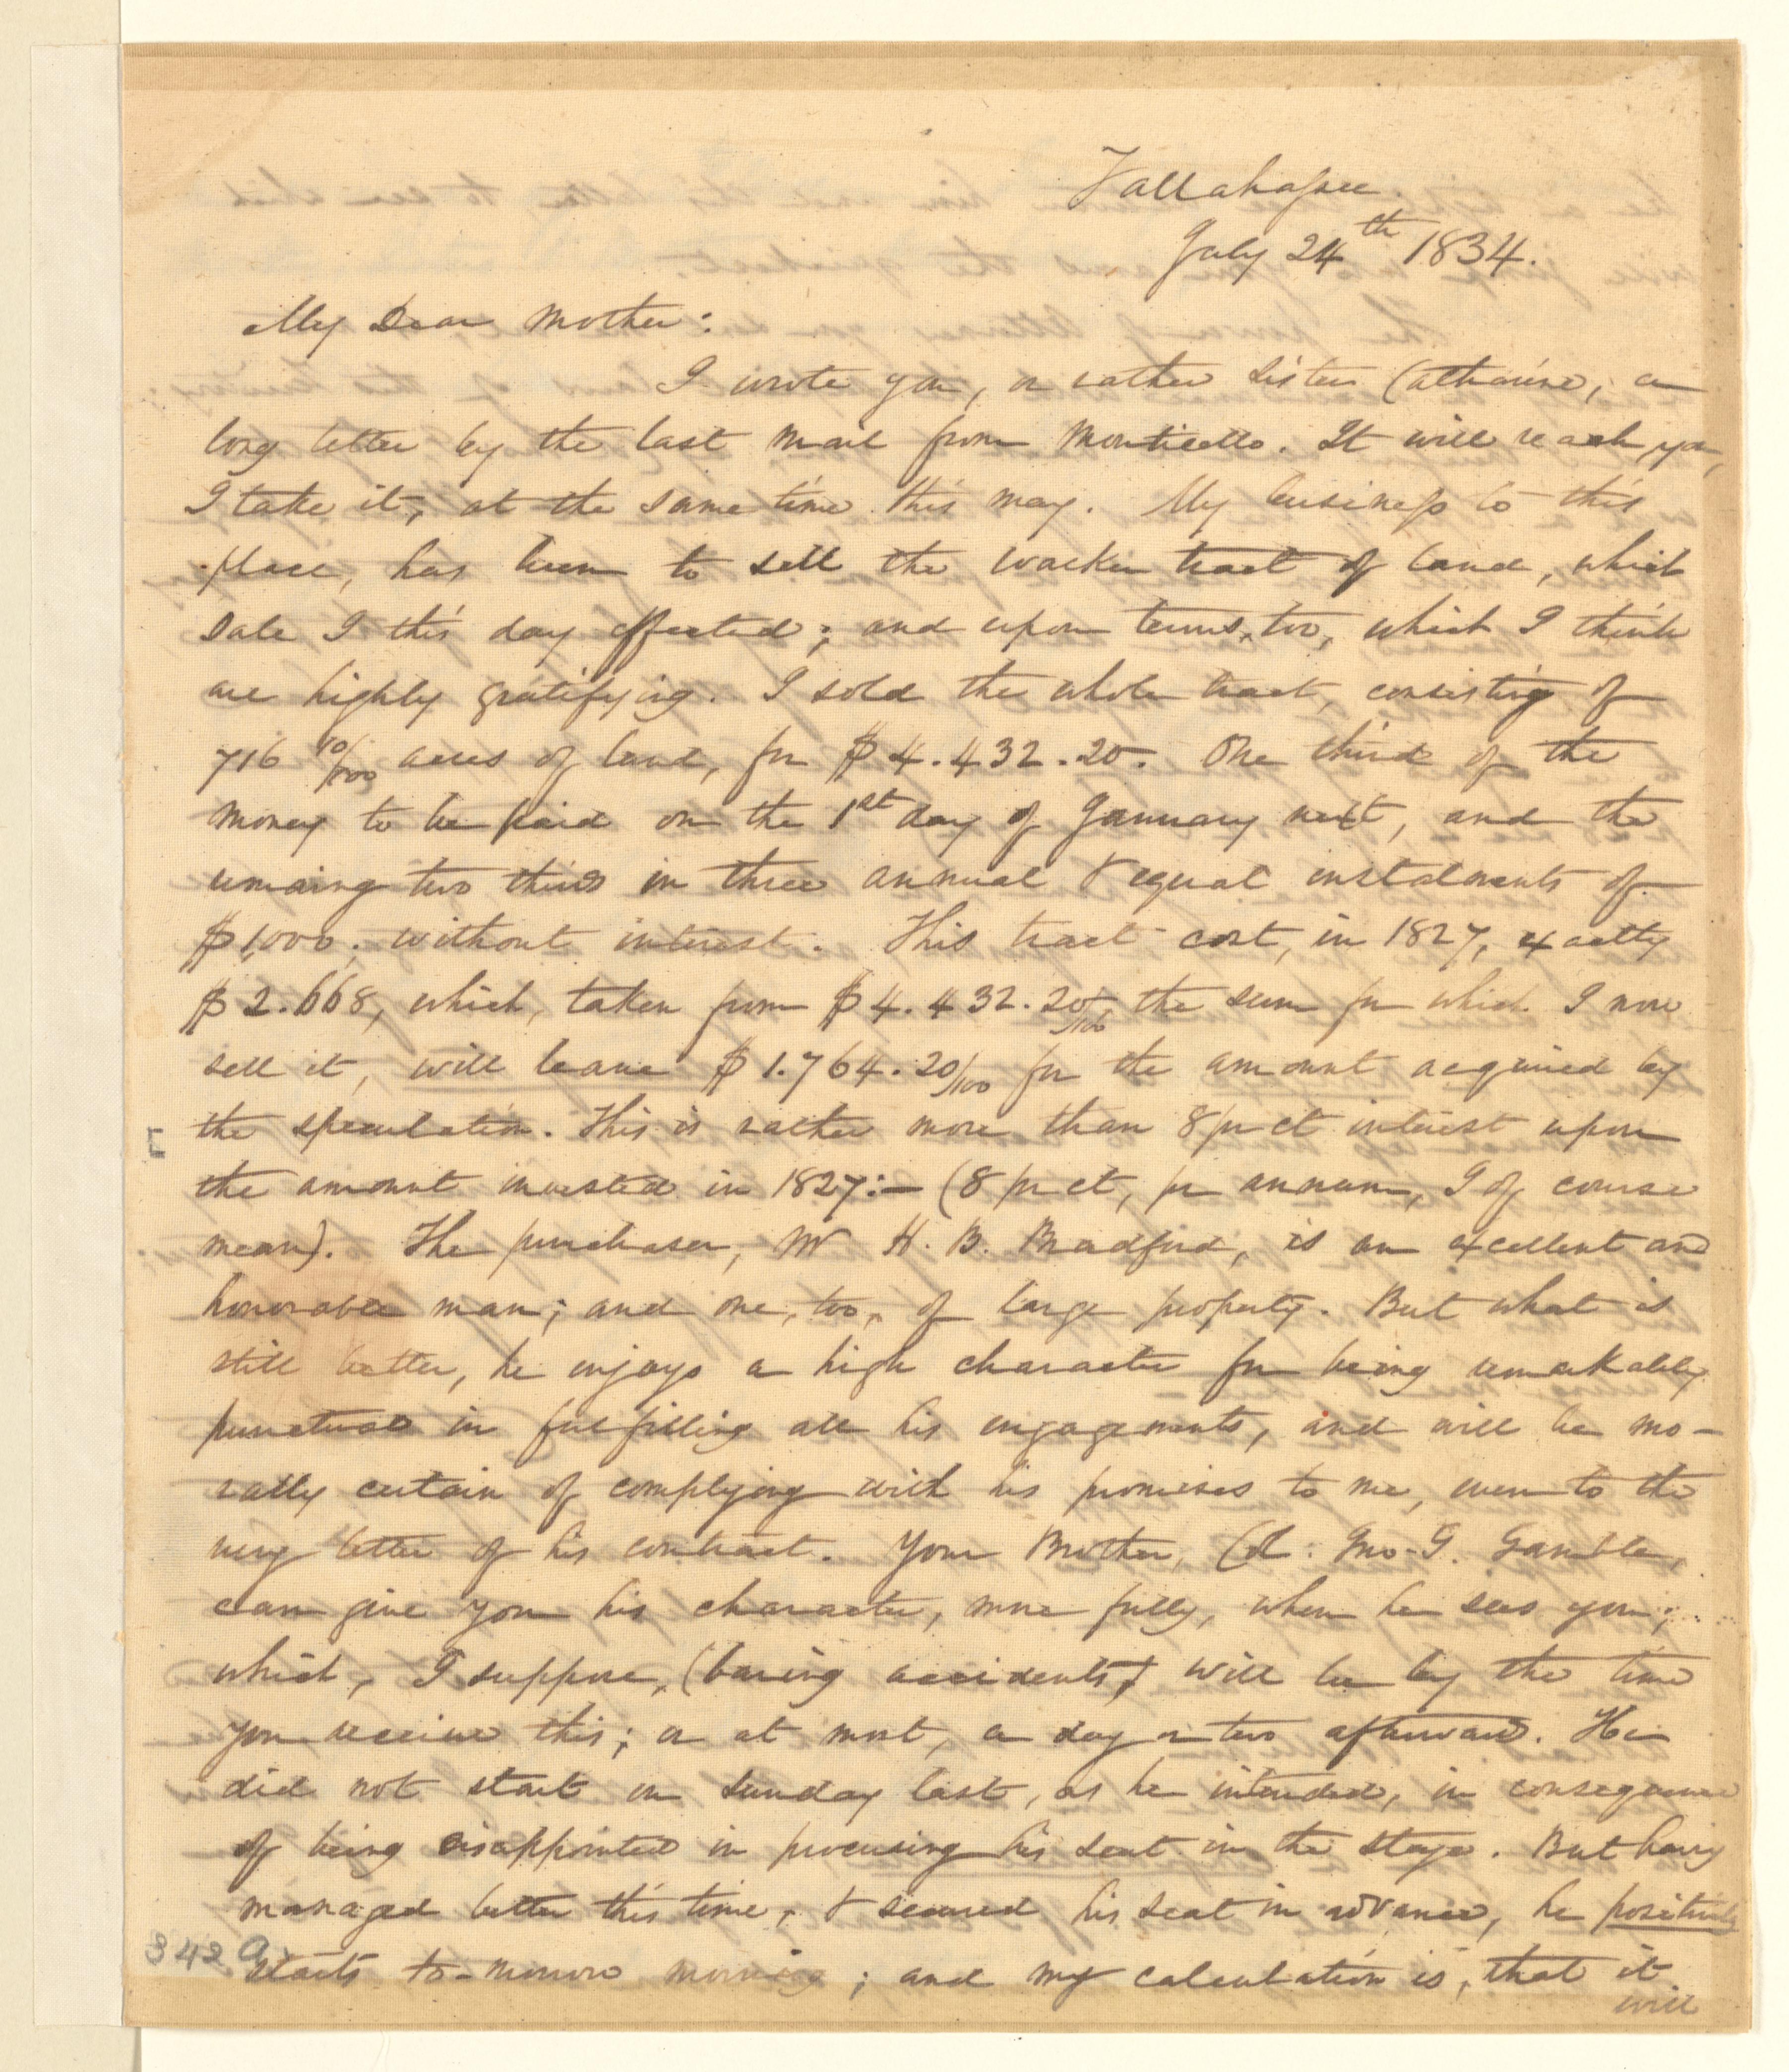 Tallahassee.
July 24th 1834.
My Dear Mother:
I wrote you, or rather sister Catharine, a
long letter by the last mail from Monticello. It will reach you,
I take it, at the same time this may. My business to this
place, has been to sell the Wacken tract of land, which
sale I this day effected; and upon terms, too, which I think
are highly gratifying. I sold the whole tract, consisting of
716 10/100 acres of land, for $4.432.20. One third of the
money to be paid on the 1st day of January next, and the
remaing two thirds in three annual & equal instalments of
$1,000. without interest. This tract cost, in 1827, exactly
$2.668, which, taken from $4.432.20/100, the sum for which I now
sell it, will leave $1.764.20/100 for the amount acquired by
the speculation. This is rather more than 8 pr ct interest upon
the amount invested in 1827:— (8 pr ct, pr annum, I of course
mean). The purchaser, Mr H. B. Bradford, is an excellent and
honorable man; and one, too, of large property. But what is
still better, he enjoys a high character for being remarkably
punctual in fulfilling all his engagements, and will be mo-
rally certain of complying with his promises to me, even to the
very letter of his contract. Your Brother, Col. Jno. G. Gamble,
can give you his character, more fully, when he sees you;
which, I suppose, (baring accidents) will be by the time
you receive this; or at most, a day or two afterward. He
did not start on Sunday last, as he intended, in consequence
of being disappointed in procuring his seat in the stage. But having
managed better this time, & secured his seat in advance, he positively
starts to-morrow morning; and my calculation is, that it
will
342 a